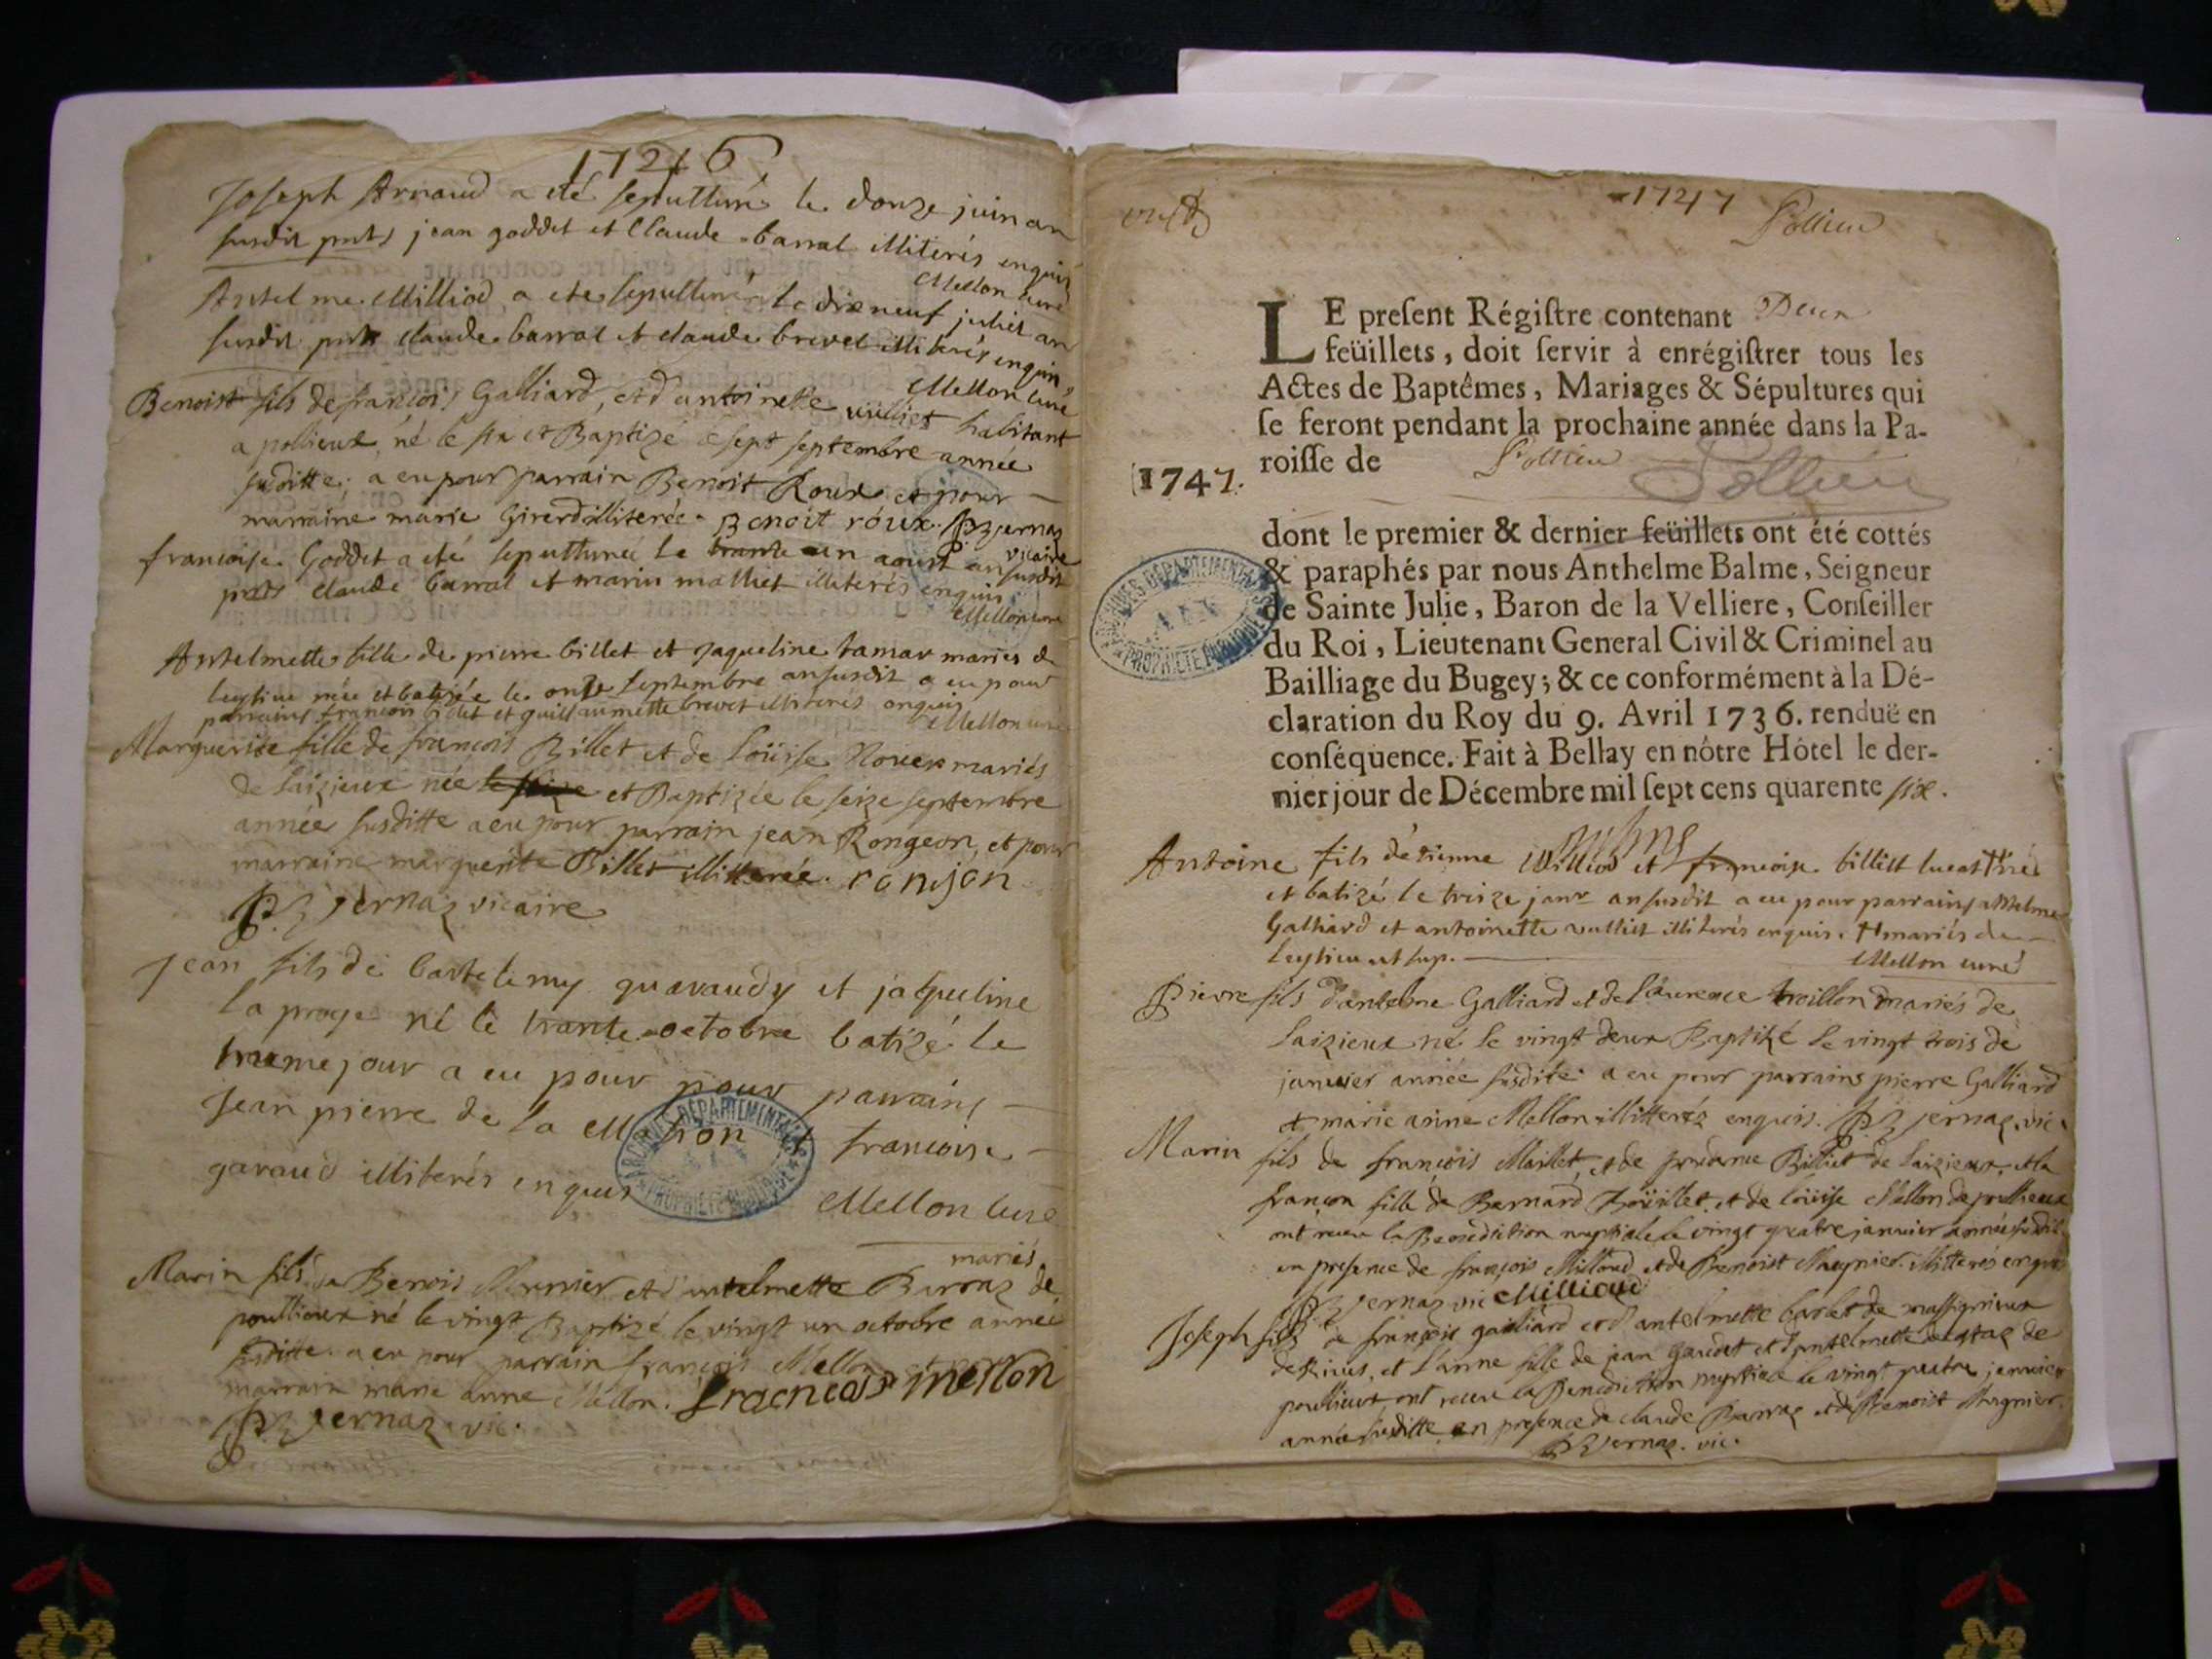 1746
Joseph Arnaud a eté sepulturé le douze juin an
susdit pnts jean goddet et Claude barral illiterés enquis
Mellon curé
Antelme Milliod a eté sepulturé le dix neuf juliet an
susdit pnts claude barral et claude brevet illiterés enquis
Mellon curé
Benoist fils de françois Galliard, et d'antoinette vulliet habitant
a pollieux né le six et Baptizé le sept septembre année
suditte; a eu pour parrain Benoit Roux et pour
marraine marie Girerd illiterée. Benoit róux. Vernaz
vicaire
francoise Goddet a eté sepulturée le trante un aoust an susdit
pnts claude barral et marin malliet illiterés enquis
Mellon curé
Antelmette fille de pierre billet et jaqueline tamar mariés de
leysieu née et batisée le onze septembre an susdit a eu pour
parrains francois billet et guillaumette brevet illiterés enquis
Mellon curé
Marguerite fille de francois Billet et de Loüise mariés
de Laizieux née le seize et Baptizée le seize septembre
année susditte a eu pour parrain jean Rongeon, et pour
marraine marguerite Billet illitterée. ronjon
Vernaz vicaire
Jean fils de bartelemy quavaudy et jaqueline
la proye né le trante octobre batizé le
meme jour a eu pour pour parrains
Jean pierre de la et francoise
gavaud illiterés enquis
Mellon curé
mariés
Marin fils de Benois Meunier et d'antelmette Burraz de
poullieux né le vingt Baptizé le vingt un octobre année
susditte a eu pour parrain françois Mellon et pour
marraine marie anne Mellon. francois mellon
Vernaz vic.
1747
Pollieu
LE present Régistre contenant Deux
feüillets, doit servir à enrégistrer tous les
Actes de Baptêmes, Mariages & Sépultures qui
se feront pendant la prochaine année dans la Pa-
roisse de Pollieu Pollieu
1747.
dont le premier & dernier feüillets ont été cottés
& paraphés par nous Anthelme Balme, Seigneur
de Sainte Julie, Baron de la Velliere, Conseiller
du Roi, Lieutenant General Civil & Criminel au
Bailliage du Bugey; & ce conformément à la Dé-
claration du Roy du 9. Avril 1736. renduë en
conséquence. Fait à Bellay en nôtre Hôtel le der-
nier jour de Décembre mil sept cens quarente six.
ARCHIVES DÉPARTEMENTALES AIN PROPRIÉTÉ PUBLIQUE
Antoine fils détienne Milliod et francoise billiet né
et batizé le treize janv an susdit a eu pour parrains antelme
Galliard et antoinette vulliet illiterés enquis. mariés de
leysieu ut sup.
Mellon curé
Pierre fils d'antelme Galliard et de Laurence troillon mariés de
Laizieux né le vingt deux Baptizé le vingt trois de
janvier année susdite a eu pour parrains pierre Galliard
et marie anne Mellon illitterés enquis. Vernaz. vic.
Marin fils de françois Maillet, et de prudance Billiet de Laizieux, et la
françon fille de Bernard Boüillet, et de loüise Mellon de poullieux
ont receu la Benediction nuptiale le vingt quatre janvier année susdit
en presence de françois Milloud et de Benoist Magnier. illitterés enquis
Vernaz vic Millioud
Joseph fils de françois galliard et d'antelmette barbet de massignieux
de Rives, et L'anne fille de jean Gaudet et d'antelmette de
poullieux, ont receu la Benediction nuptiale le vingt quatre janvier
année susditte en presence de claude Barraz et de Benoist Magnier.
Vernaz. vic.